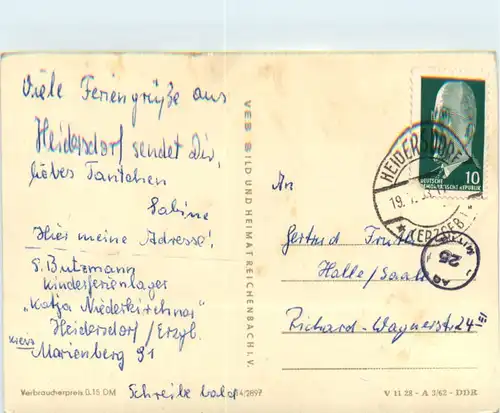 Viele Feriengrüße aus
Heidersdorf sendet Dir,
liebes Tantchen
Sabine
Hier meine Adresse!
S. Butzmann
Kinderferienlager
"Katja Niederkirchner"
Heidersdorf/Erzgb.
Kreis Marienberg 91
Schreibe bald
Verbraucherpreis 0,15 DM
4/2897
VEB BILD UND HEIMAT REICHENBACH I. V.
An
Gertrud
Halle/Saale
Richard-Wagnerstr. 24
V 11 28 - A 3/62 - DDR
DEUTSCHE
DEMOKRATISCHE REPUBLIK
10
HEIDERSDORF
(ERZGEB)
25